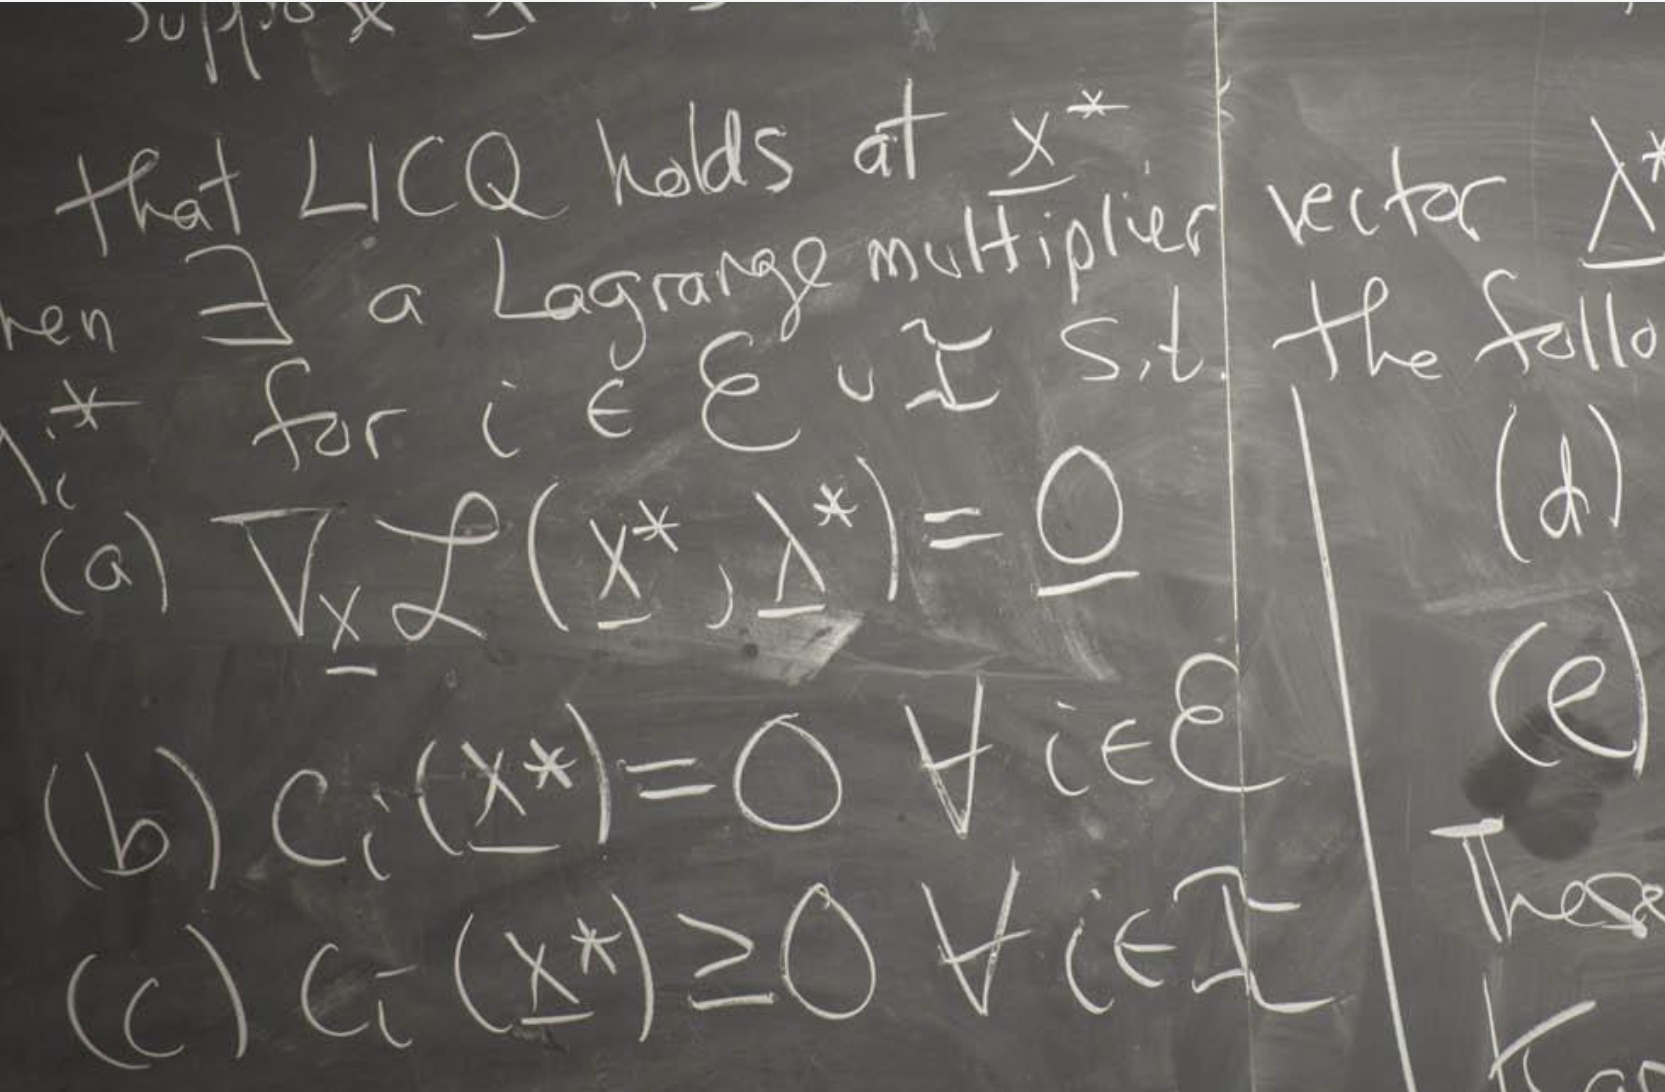 that LICQ holds at x*
∃ a Lagrange multiplier vector λ*
for i ∈ ℰ ∪ ℐ s.t. the
(a) ∇ₓ ℒ(x*, λ*) = 0
(b) cᵢ(x*) = 0 ∀ i ∈ ℰ
(c) cᵢ(x*) ≥ 0 ∀ i ∈ ℐ
(d)
(e)
These